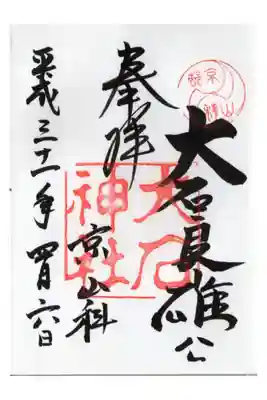 大石良雄公
奉拝
京山科
大石
神社
平成三十一年四月六日